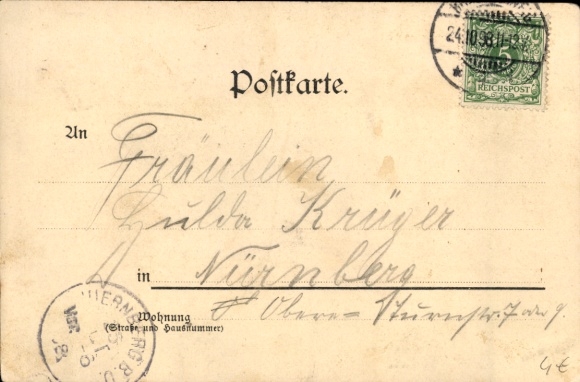 24.10.98.11-12
5
REICHSPOST
Postkarte.
An
Fräulein
Hulda Krüger
in Nürnberg
Wohnung
(Straße und Hausnummer)
Obere Turnstr. 7 oder 9.
NUERNBERG B.O.
4€